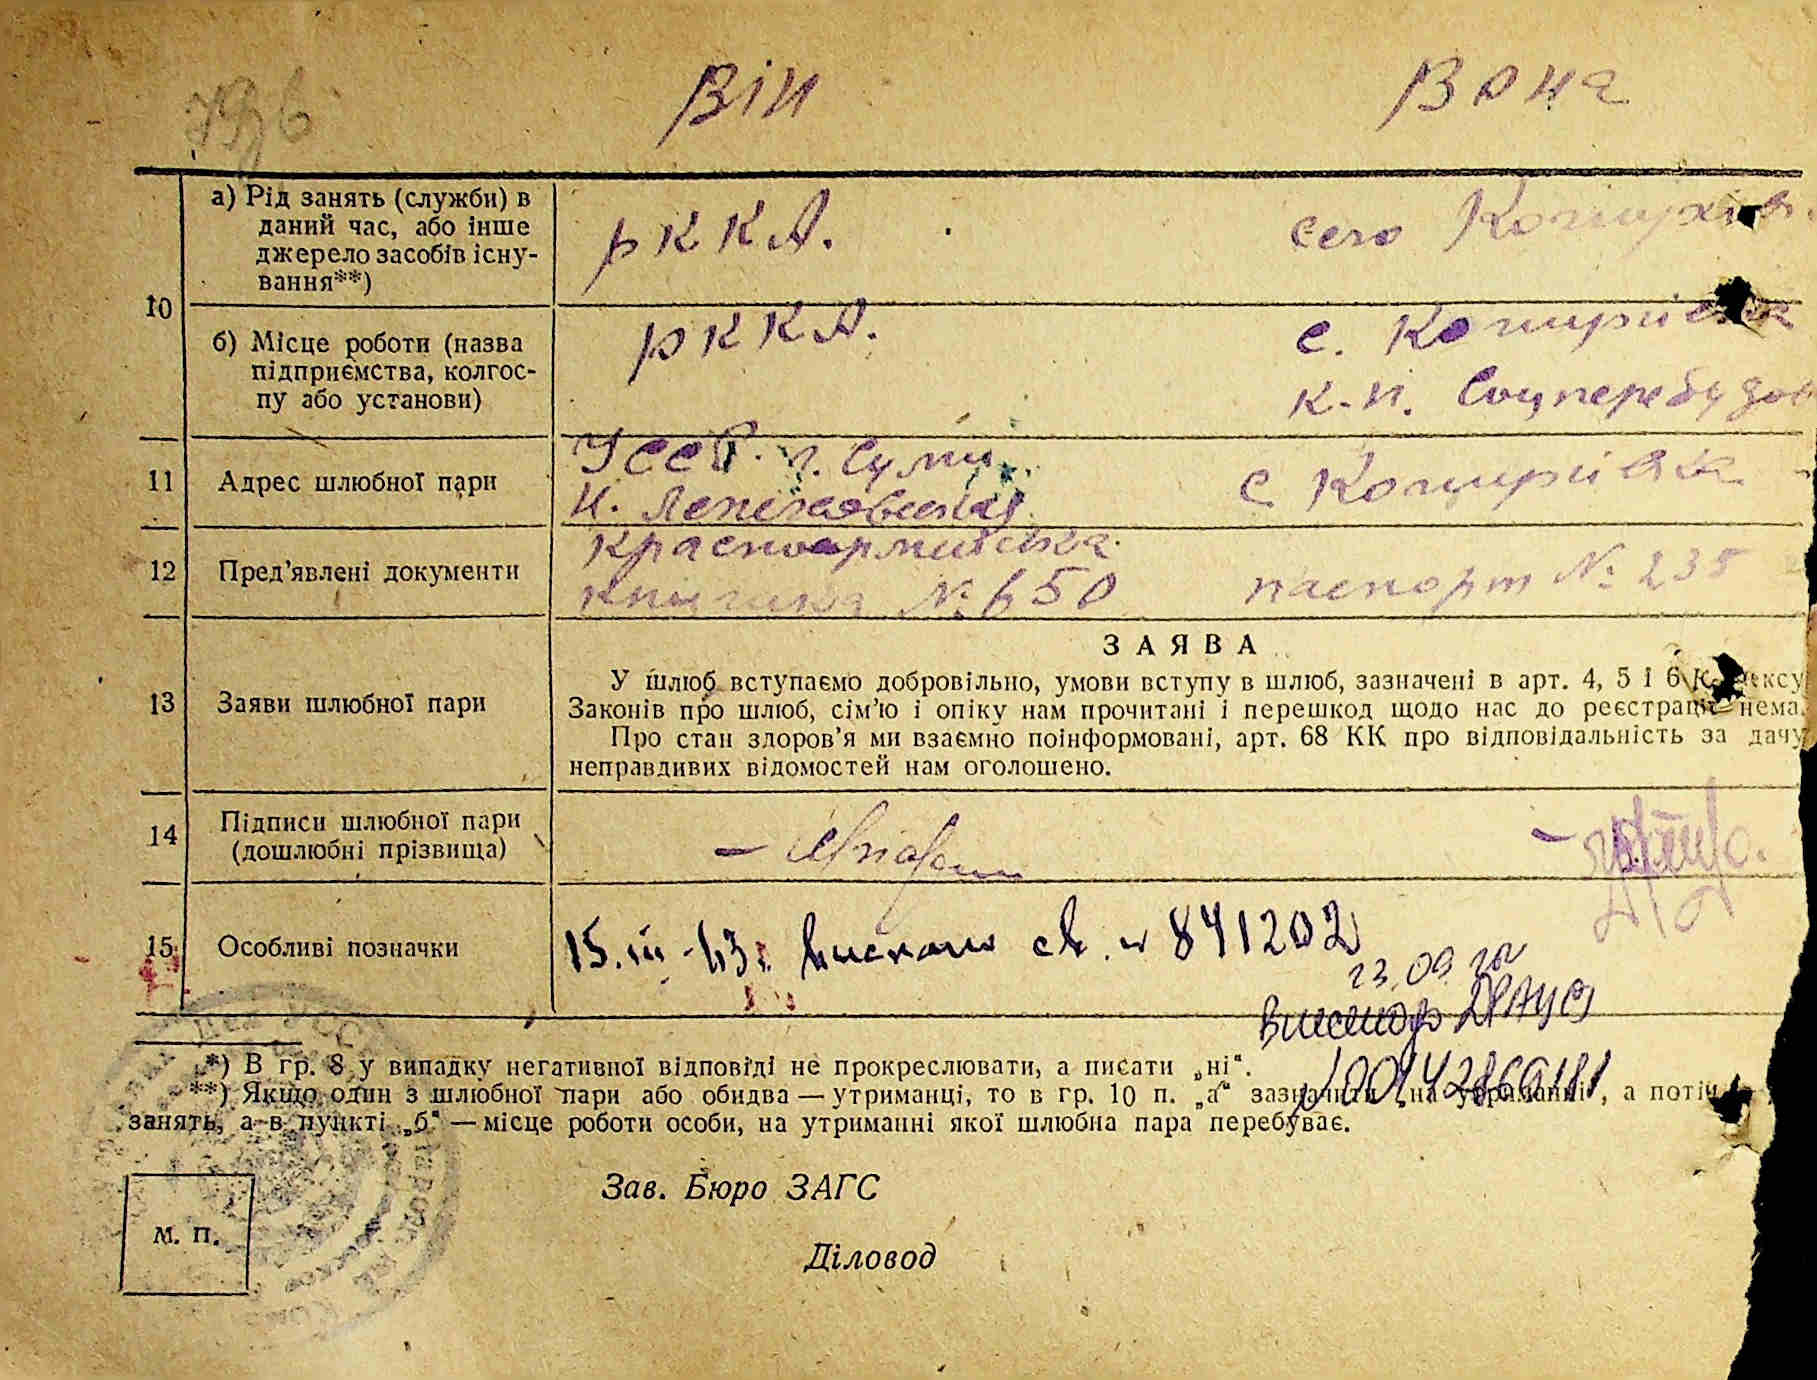 Він Вона
а) Рід занять (служби) в
даний час, або інше
джерело засобів існу-
вання**)
РККА. село
10
б) Місце роботи (назва
підприємства, колгос-
пу або установи)
РККА. с.
к-п. Соцперебудов
11 Адрес шлюбної пари
УССР. г. Суми с
12 Пред’явлені документи
Красноармійська
книжка № 650 паспорт № 235
ЗАЯВА
13 Заяви шлюбної пари
У шлюб вступаємо добровільно, умови вступу в шлюб, зазначені в арт. 4, 5 і 6 Кодексу
Законів про шлюб, сім’ю і опіку нам прочитані і перешкод щодо нас до реєстрації нема.
Про стан здоров’я ми взаємно поінформовані, арт. 68 КК про відповідальність за дачу
неправдивих відомостей нам оголошено.
14 Підписи шлюбної пари
(дошлюбні прізвища)
15 Особливі позначки
15.III-63г. выслано св. № 841202
*) В гр. 8 у випадку негативної відповіді не прокреслювати, а писати „ні“.
**) Якщо один з шлюбної пари або обидва — утриманці, то в гр. 10 п. „а“ зазначити „на утриманні“, а потім
занять, а в пункті „б“ — місце роботи особи, на утриманні якої шлюбна пара перебуває.
Зав. Бюро ЗАГС
М. П.
Діловод